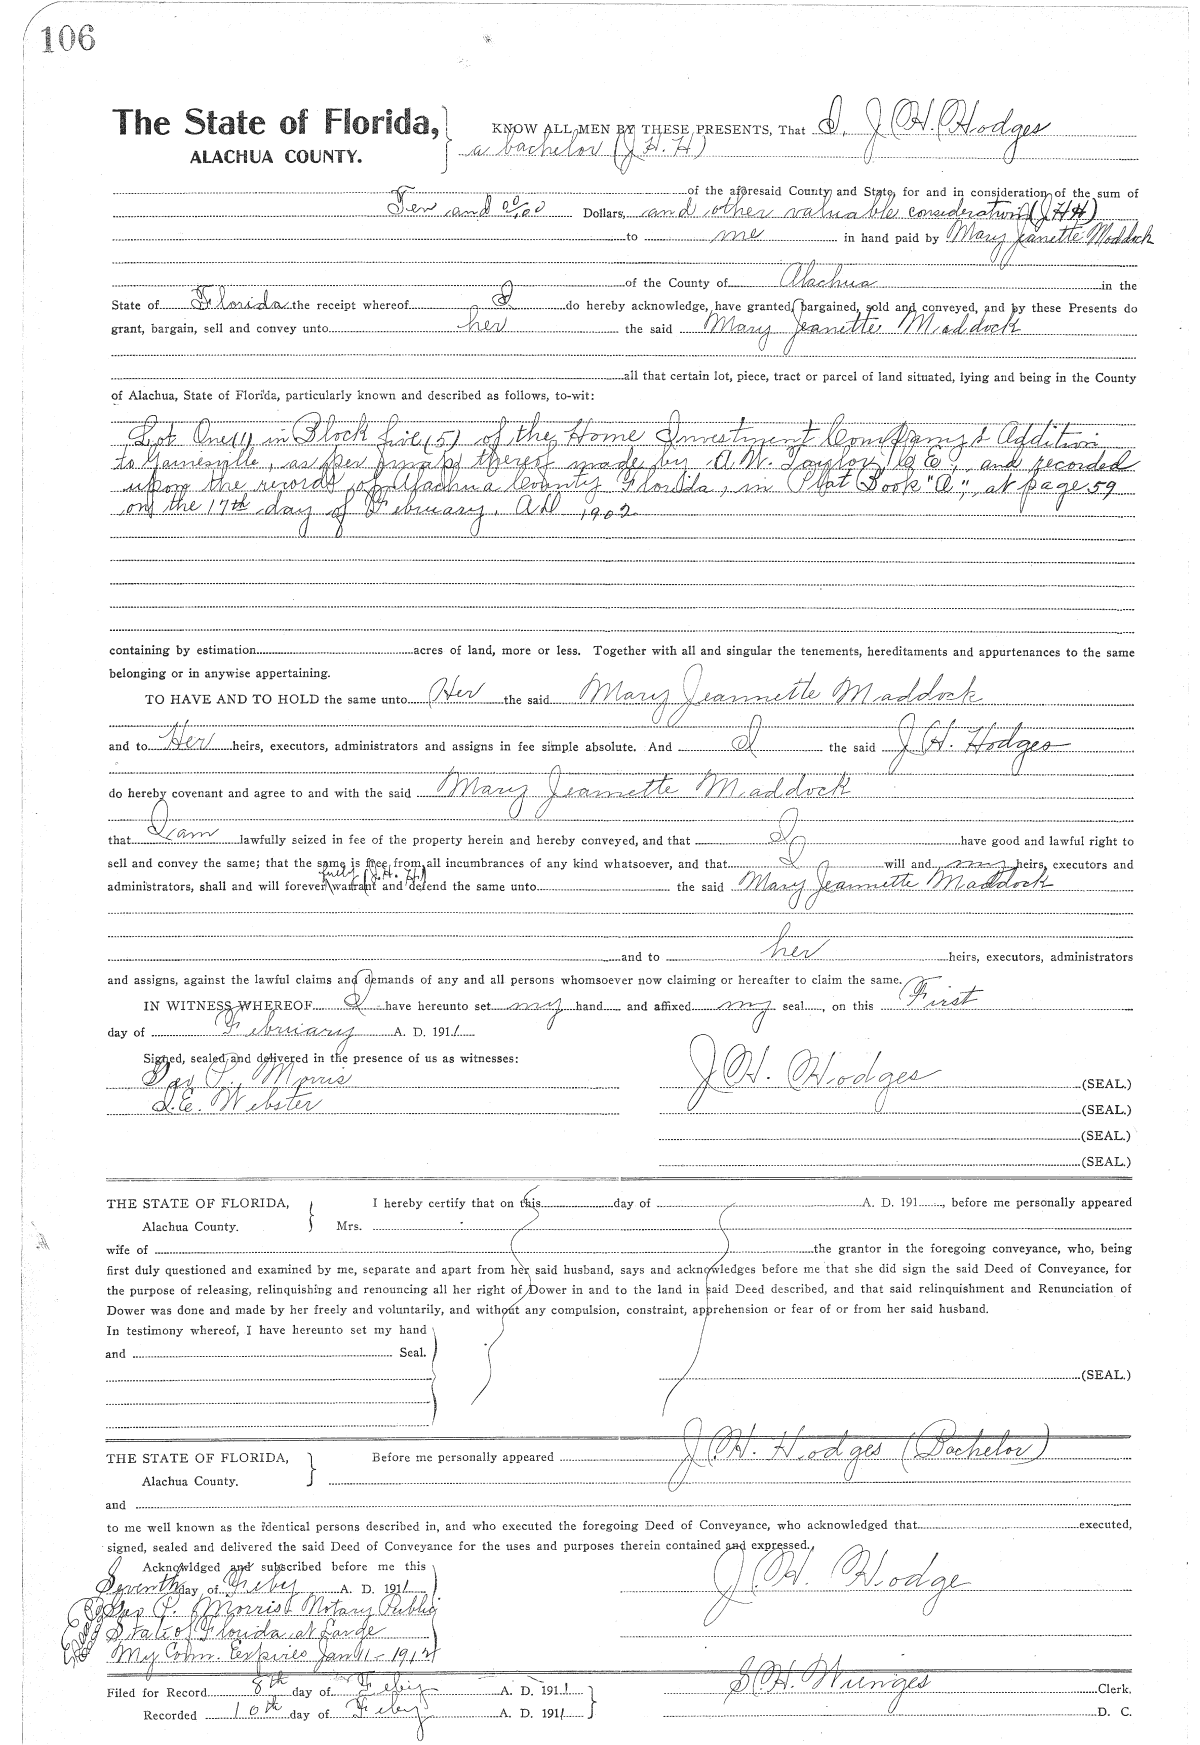 106
The State of Florida, KNOW ALL MEN BY THESE PRESENTS, That I, J. H. Hodges
ALACHUA COUNTY. a bachelor (J H. H)
of the aforesaid County and State, for and in consideration of the sum of
Ten and 00/100 Dollars, and other valuable consideration (J HH)
to me in hand paid by Mary Jeanette Maddock
of the County of Alachua in the
State of Florida the receipt whereof I do hereby acknowledge, have granted, bargained, sold and conveyed, and by these Presents do
grant, bargain, sell and convey unto her the said Mary Jeanette Maddock
all that certain lot, piece, tract or parcel of land situated, lying and being in the County
of Alachua, State of Florida, particularly known and described as follows, to-wit:
Lot One (1) in Block five (5) of the Home Investment Company's Addition
to Gainesville, as per map thereof made by A. W. Taylor, C. E., and recorded
upon the records of Alachua County Florida, in Plat Book "A", at page 59
on the 17th day of February, AD 1902
containing by estimation acres of land, more or less. Together with all and singular the tenements, hereditaments and appurtenances to the same
belonging or in anywise appertaining.
TO HAVE AND TO HOLD the same unto Her the said Mary Jeannette Maddock
and to Her heirs, executors, administrators and assigns in fee simple absolute. And I the said J. H. Hodges
do hereby covenant and agree to and with the said Mary Jeannette Maddock
that I am lawfully seized in fee of the property herein and hereby conveyed, and that I have good and lawful right to
sell and convey the same; that the same is free from all incumbrances of any kind whatsoever, and that I will and my heirs, executors and
fully (J. H. H)
administrators, shall and will forever warrant and defend the same unto the said Mary Jeannette Maddock
and to her heirs, executors, administrators
and assigns, against the lawful claims and demands of any and all persons whomsoever now claiming or hereafter to claim the same.
IN WITNESS WHEREOF I have hereunto set my hand and affixed my seal, on this First
day of February A. D. 1911
Signed, sealed and delivered in the presence of us as witnesses:
Geo P. Morris J. H. Hodges (SEAL.)
I. E. Webster (SEAL.)
(SEAL.)
(SEAL.)
THE STATE OF FLORIDA, I hereby certify that on this day of A. D. 191 , before me personally appeared
Alachua County. Mrs.
wife of the grantor in the foregoing conveyance, who, being
first duly questioned and examined by me, separate and apart from her said husband, says and acknowledges before me that she did sign the said Deed of Conveyance, for
the purpose of releasing, relinquishing and renouncing all her right of Dower in and to the land in said Deed described, and that said relinquishment and Renunciation of
Dower was done and made by her freely and voluntarily, and without any compulsion, constraint, apprehension or fear of or from her said husband.
In testimony whereof, I have hereunto set my hand
and Seal.
(SEAL.)
THE STATE OF FLORIDA, Before me personally appeared J. H. Hodges (Bachelor)
Alachua County.
and
to me well known as the identical persons described in, and who executed the foregoing Deed of Conveyance, who acknowledged that executed,
signed, sealed and delivered the said Deed of Conveyance for the uses and purposes therein contained and expressed.
Acknowldged and subscribed before me this J. H. Hodge
Seventh day of Feby A. D. 1911
Geo P. Morris Notary Public
State of Florida at Large
My Com. Expires Jan 11 - 1912
Filed for Record 8th day of Feby A. D. 1911 S. H. Wienges Clerk.
Recorded 10th day of Feby A. D. 1911 D. C.